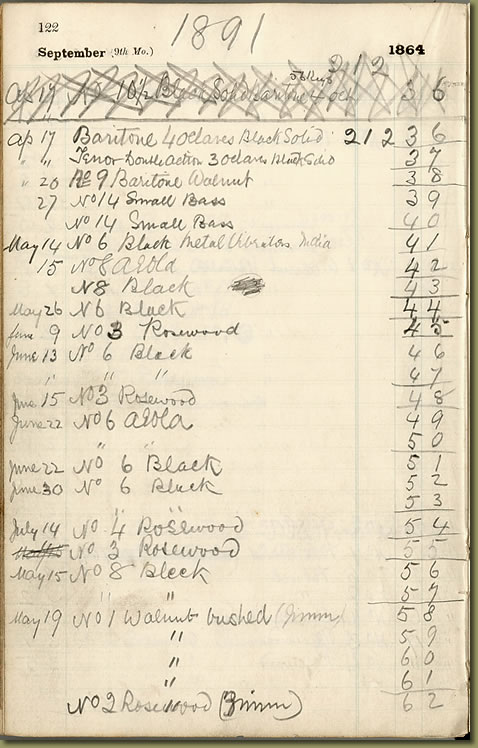 122
1891
September (9th Mo.) 1864
56 Keys 212
Ap 17 No 10½ Black Solid Baritone 4 oct 3 6
Ap 17 Baritone 4 Octaves Black Solid 212 3 6
" " Tenor Double Action 3 octaves Black Solid 3 7
" 20 No 9 Baritone Walnut 3 8
27 No 14 Small Bass 3 9
No 14 Small Bass 4 0
May 14 No 6 Black Metal Vibrators India 4 1
15 No 8 AEola 4 2
N8 Black 4 3
May 26 N6 Black 4 4
June 9 No 3 Rosewood 4 5
June 13 No 6 Black 4 6
" " " 4 7
June 15 No 3 Rosewood 4 8
June 22 No 6 AEola 4 9
" " 5 0
June 22 No 6 Black 5 1
June 30 No 6 Black 5 2
" " 5 3
July 14 No 4 Rosewood 5 4
No 3 Rosewood 5 5
May 15 No 8 Black 5 6
" " 5 7
May 19 No 1 Walnut bushed 5 8
" 5 9
" 6 0
" 6 1
No 2 Rosewood 6 2